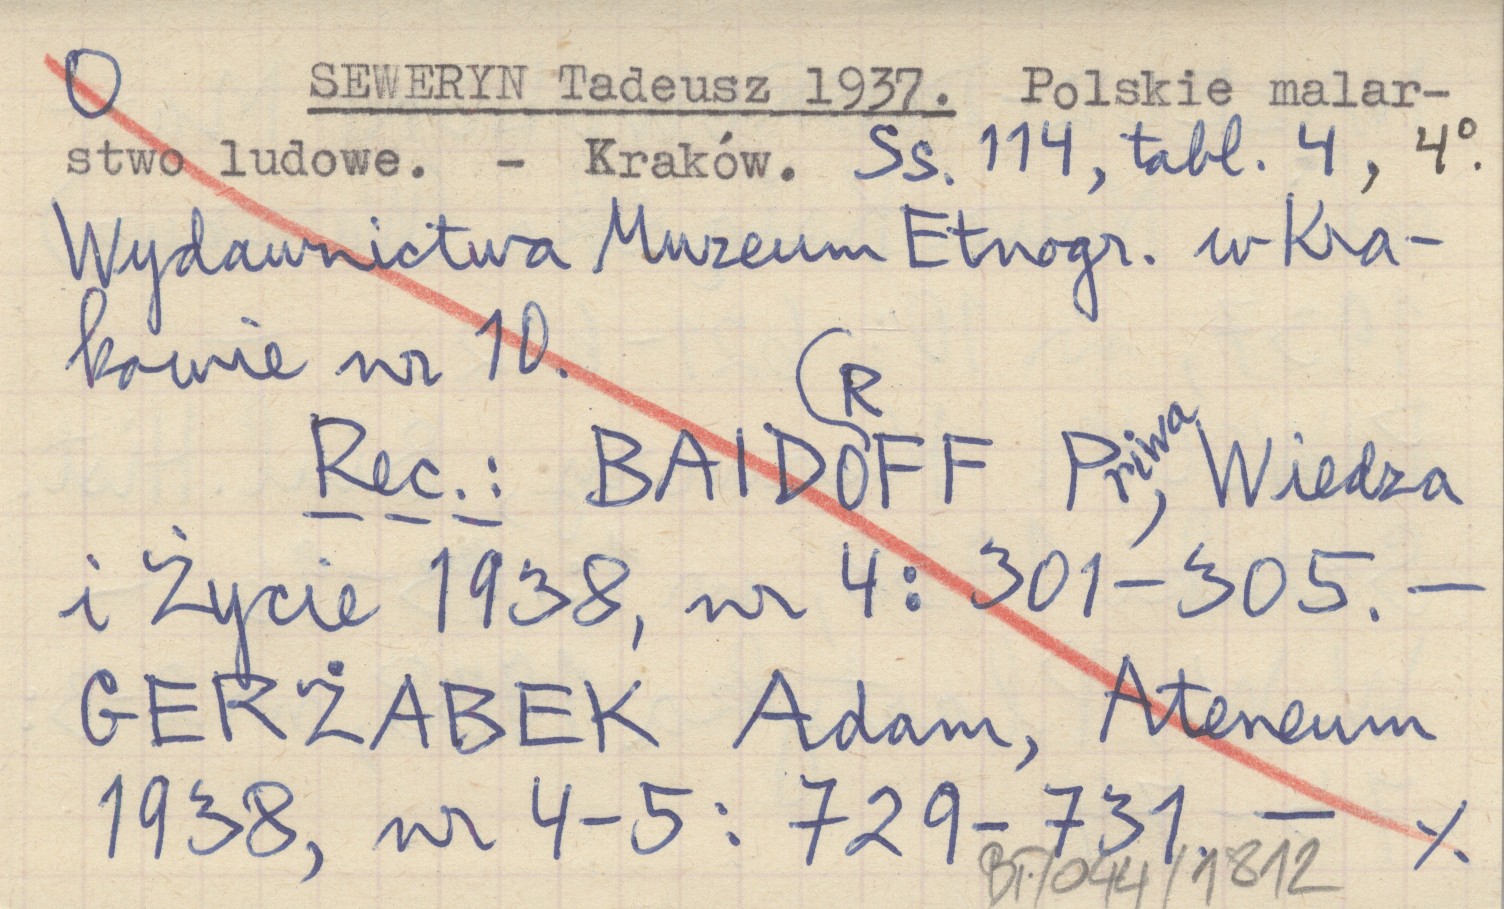 O SEWERYN Tadeusz 1937. Polskie malar-
stwo ludowe. - Kraków. Ss. 114, tabl. 4, 4°.
Wydawnictwa Muzeum Etnogr. w Kra-
kowie nr 10.
R
Rec.: BAIDOFF Priwa, Wiedza
i Życie 1938, nr 4: 301-305. —
GERŻABEK Adam, Ateneum
1938, nr 4-5: 729-731. — ٪
BT/044/1812